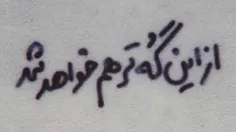 از این گُه تر هم خواهد شد